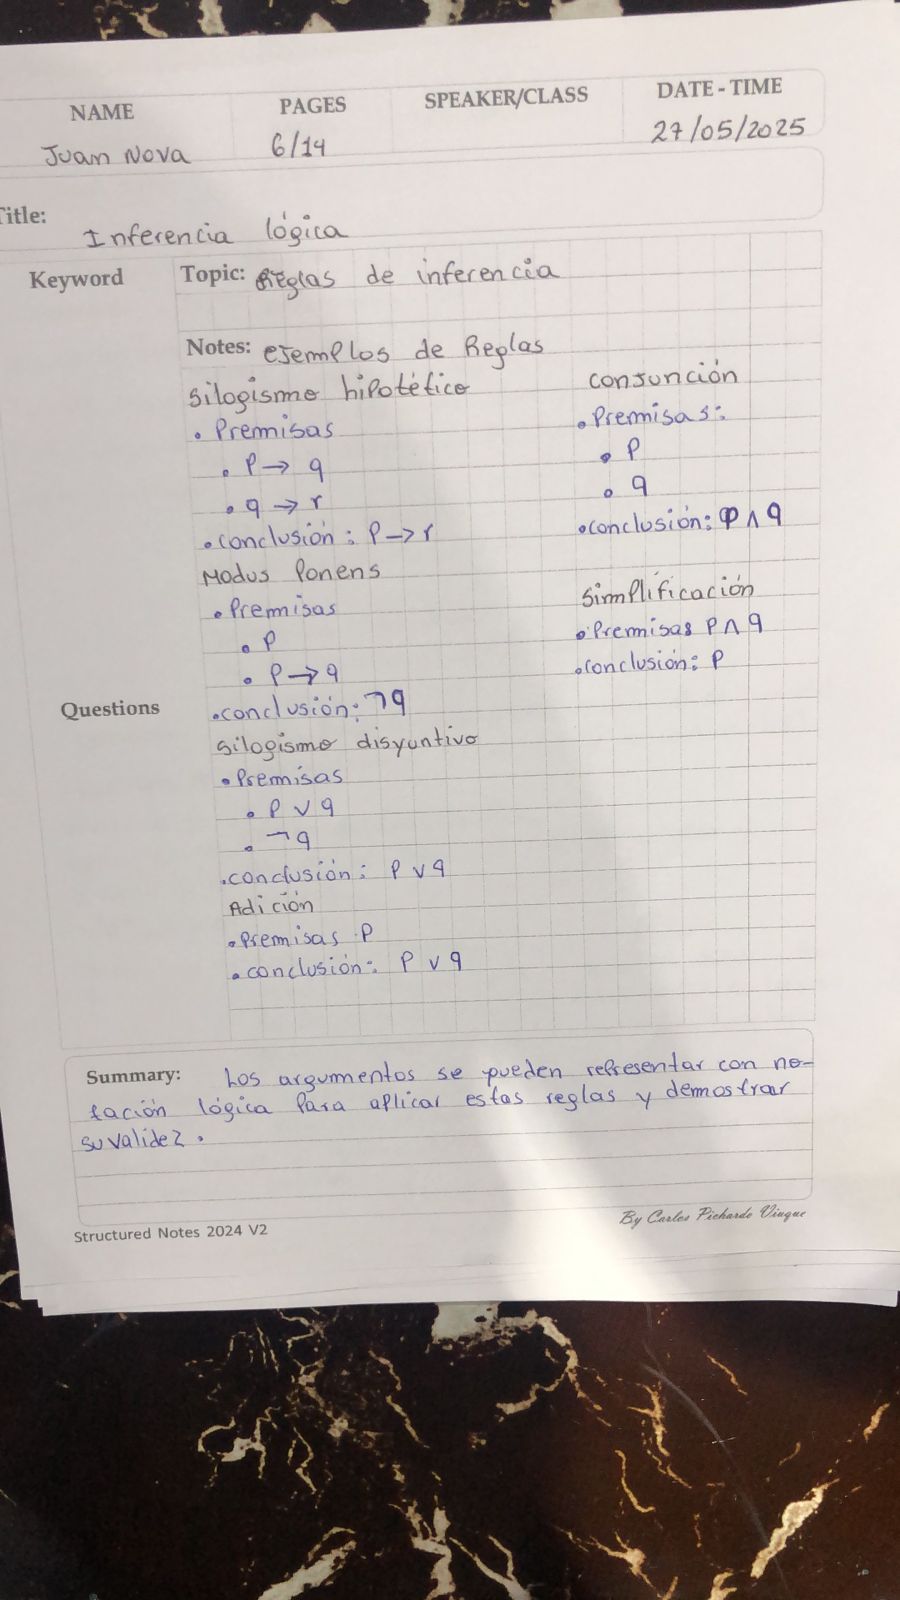 NAME PAGES SPEAKER/CLASS DATE - TIME
Juan Nova 6/14 27/05/2025
Title:
Inferencia lógica
Keyword
Topic: Reglas de inferencia
Notes: ejemplos de Reglas
silogismo hipotético
• Premisas
• P → q
• q → r
• conclusión: P → r
Modus Ponens
• Premisas
• P
• P → q
• conclusión: ¬q
silogismo disyuntivo
• Premisas
• P ∨ q
• ¬q
• conclusión: P ∨ q
Adición
• Premisas P
• conclusión: P ∨ q
conjunción
• Premisas:
• P
• q
• conclusión: P ∧ q
simplificación
• Premisas P ∧ q
• conclusión: P
Questions
Summary: Los argumentos se pueden representar con no-
tación lógica para aplicar estas reglas y demostrar
su validez.
Structured Notes 2024 V2
By Carlos Pichardo Viuque